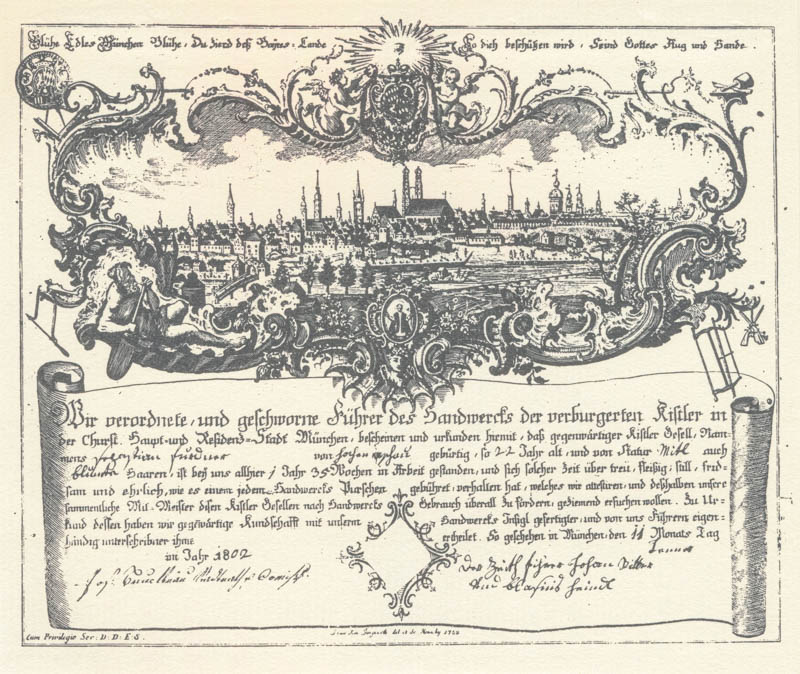 Blühe Edles München Blühe, Du Zierd deß Bayrs-Lande
So dich beschützen wird, Seind Gottes Aug und Hande.
Wir verordnete, und geschworne Führer des Handwercks der verburgerten Kistler in
der Churft. Haupt-und Residenz-Stadt München, bescheinen und urkunden hiemit, daß gegenwärtiger Kistler Gesell, Nam-
mens von gebürtig, so 22 Jahr alt, und von Natur Mitl auch
Haaren, ist beÿ uns allhier 1 Jahr 35 Wochen in Arbeit gestanden, und sich solcher Zeit über treu, fleißig, still, frid-
sam und ehrlich, wie es einem jedem Handwercks Purschen gebühret, verhalten hat, welches wir attestiren, und deßhalben unsere
sammentliche Mit-Meister disen Kistler Gesellen nach Handwercks Gebrauch überall zu fördern, geziemend ersuchen wollen. Zu Ur-
kund dessen haben wir gegwärtige Kundschafft mit unserm Handwercks Insigl gefertigter, und von uns Führern eigen-
händig unterschribner ihme ertheilet. So geschehen in München, den 11 Monats Tag
im Jahr 1802
Cum Privilegio Ser. D. D. E. S.